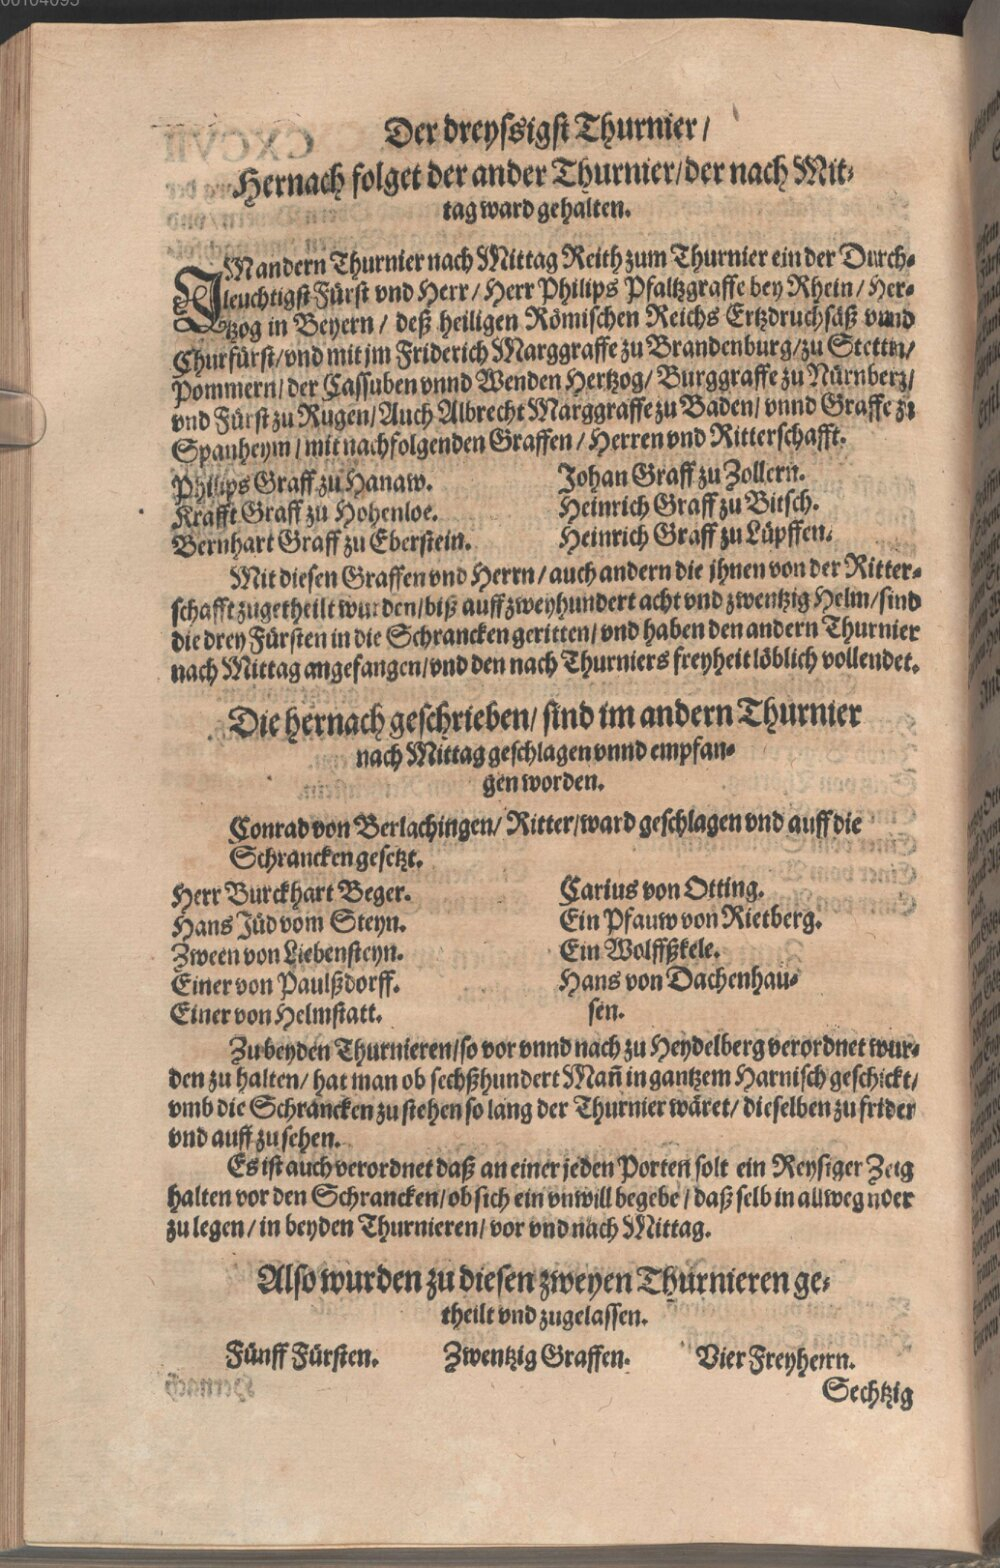 Der dreyssigst Thurnier /
Hernach folget der ander Thurnier / der nach Mit-
tag ward gehalten.
IM andern Thurnier nach Mittag Reith zum Thurnier ein der Durch-
leuchtigst Fürst vnd Herr / Herr Philips Pfaltzgraffe bey Rhein / Her-
tzog in Beyern / deß heiligen Römischen Reichs Ertzdruchsäß vnnd
Churfürst / vnd mit jm Friderich Marggraffe zu Brandenburg / zu Stettin /
Pommern / der Cassuben vnnd Wenden Hertzog / Burggraffe zu Nürnberg /
vnd Fürst zu Rugen / Auch Albrecht Marggraffe zu Baden / vnnd Graffe zu
Spanheym / mit nachfolgenden Graffen / Herren vnd Ritterschafft.
Philips Graff zu Hanaw.
Krafft Graff zu Hohenloe.
Bernhart Graff zu Eberstein.
Johan Graff zu Zollern.
Heinrich Graff zu Bitsch.
Heinrich Graff zu Lüpffen.
Mit diesen Graffen vnd Herrn / auch andern die jhnen von der Ritter-
schafft zugetheilt wurden / biß auff zweyhundert acht vnd zwentzig Helm / sind
die drey Fürsten in die Schrancken geritten / vnd haben den andern Thurnier
nach Mittag angefangen / vnd den nach Thurniers freyheit löblich vollendet.
Die hernach geschrieben / sind im andern Thurnier
nach Mittag geschlagen vnnd empfan-
gen worden.
Conrad von Berlachingen / Ritter / ward geschlagen vnd auff die
Schrancken gesetzt.
Herr Burckhart Beger.
Hans Jüd vom Steyn.
Zween von Liebensteyn.
Einer von Paulßdorff.
Einer von Helmstatt.
Carius von Otting.
Ein Pfauw von Rietberg.
Ein Wolffßkele.
Hans von Dachenhau-
sen.
Zu beyden Thurnieren / so vor vnnd nach zu Heydelberg verordnet wur-
den zu halten / hat man ob sechßhundert Mañ in gantzem Harnisch geschickt /
vmb die Schrancken zu stehen so lang der Thurnier wäret / dieselben zu frider
vnd auff zu sehen.
Es ist auch verordnet daß an einer jeden Porten solt ein Reysiger Zeug
halten vor den Schrancken / ob sich ein vnwill begebe / daß selb in allweg nder
zu legen / in beyden Thurnieren / vor vnd nach Mittag.
Also wurden zu diesen zweyen Thurnieren ge-
theilt vnd zugelassen.
Fünff Fürsten. Zwentzig Graffen. Vier Freyherrn.
Sechtzig